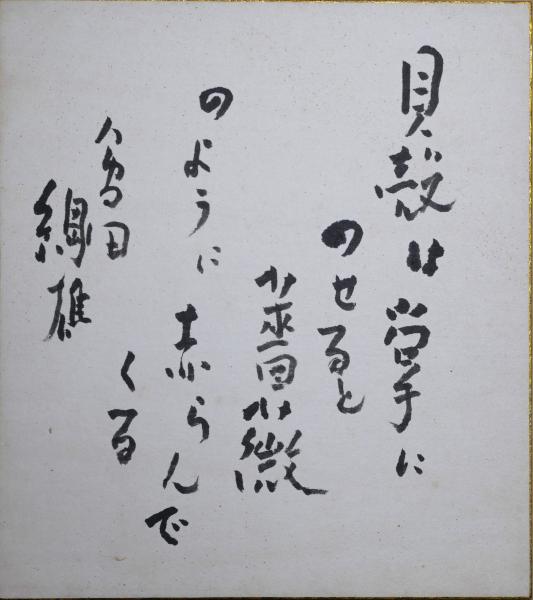 貝殻は掌に
のせると
薔薇
のように赤らんで
くる
會田
綱雄